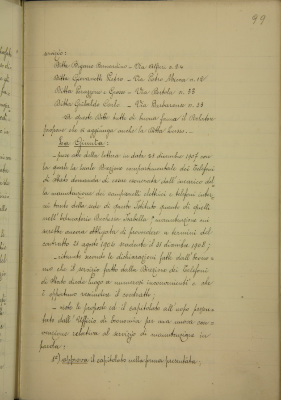 99
servizio:
Ditta Bigano Bernardino - Via Alfieri n. 24
Ditta Giovanetti Pietro - Via Pietro Micca n. 15
Ditta - Via Bertola n. 33
Ditta Gribaldo Carlo - Via Barbaroux n. 28
Di queste Ditte tutte di buona fama il Relatore
propone che si aggiunga anche la Ditta
La Giunta:
- presa atto della lettera in data 23 dicembre 1907 con
la quale la locale Direzione compartimentale dei Telefoni
di Stato domanda di essere esonerata dall'incarico
la manutenzione dei campanelli elettrici e telefoni inter-
ni tanto della sede di questo Istituto quanto di quelli
nell'Educatorio Duchessa Isabella, manutenzione cui
sarebbe ancora obbligata di provvedere a termini del
contratto 21 agosto 1906 scadente il 31 dicembre 1908;
- ritenuto secondo le dichiarazioni fatte dall'Econo-
mo che il servizio fatto dalla Direzione dei Telefoni
di Stato diede luogo a numerosi inconvenienti e che
è opportuno rescindere il contratto;
- viste le proposte ed il capitolato all'uopo presen-
tato dall'Ufficio di Economia per una nuova con-
venzione relativa al servizio di manutenzione in
parola:
1°) approva il capitolato nella forma presentata;